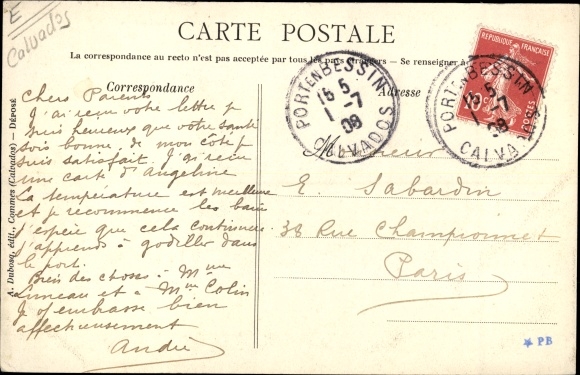 E
Calvados
CARTE POSTALE
La correspondance au recto n'est pas acceptée par tous les pays étrangers. — Se renseigner à
Correspondance
Adresse
Chers Parents
J'ai reçu votre lettre je
suis heureux que votre santé
sois bonne, de mon côté je
suis satisfait. J'ai reçu
une carte d'Angeline
La température est meilleure
et je recommence les bains
j'espère que cela continuera
j'apprends à godiller dans
le port.
Bien des choses à Mme
Luneau et à Mme Colin
Je vous embrasse bien
affectueusement
André
Monsieur
E. Sabardin
38 Rue Championnet
Paris
PORT EN BESSIN
15 5
1 -7
09
CALVADOS
PORT EN BESSIN
15 5
1 -7
09
CALVADOS
REPUBLIQUE FRANÇAISE
POSTES
A. Dubosq, édit., Commes (Calvados) — DÉPOSÉ
PB